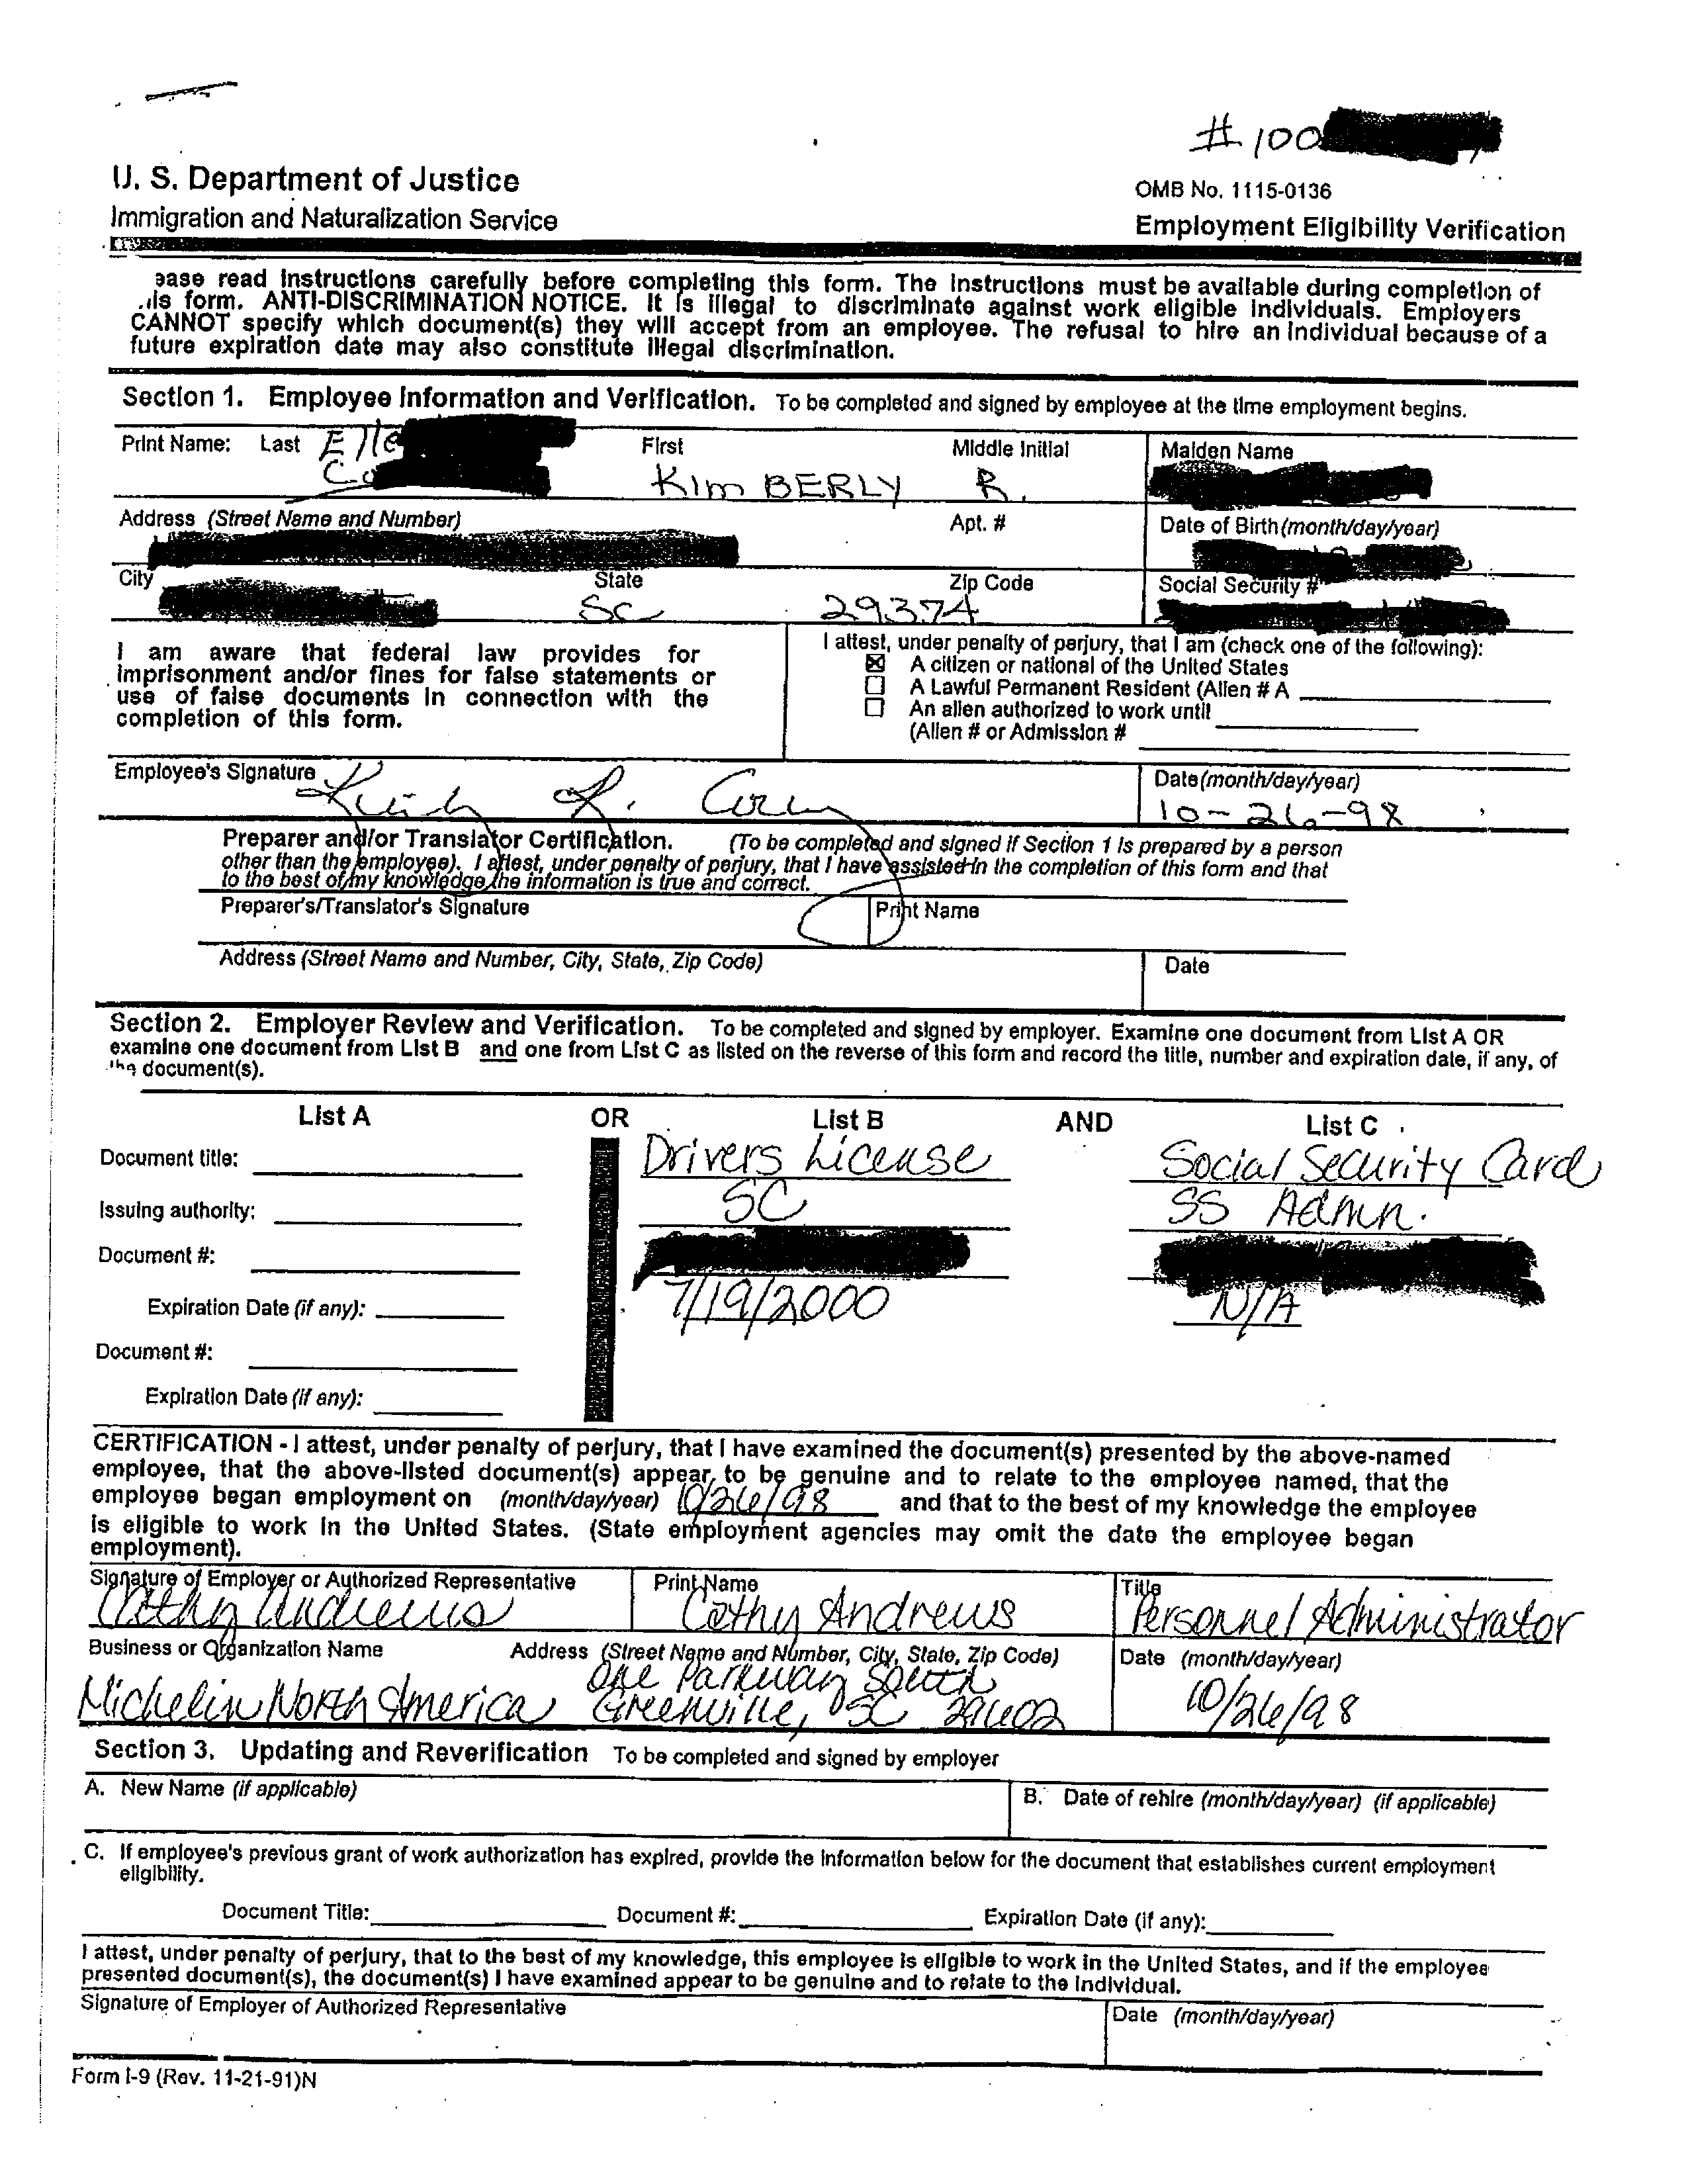 # 100
U. S. Department of Justice
Immigration and Naturalization Service
OMB No. 1115-0136
Employment Eligibility Verification
ease read instructions carefully before completing this form. The instructions must be available during completion of
is form. ANTI-DISCRIMINATION NOTICE. It is illegal to discriminate against work eligible individuals. Employers
CANNOT specify which document(s) they will accept from an employee. The refusal to hire an individual because of a
future expiration date may also constitute illegal discrimination.
Section 1. Employee Information and Verification. To be completed and signed by employee at the time employment begins.
Print Name: Last First Middle Initial Maiden Name
Elle
Co
KimBERLY R.
Address (Street Name and Number) Apt. # Date of Birth (month/day/year)
City State Zip Code Social Security #
SC 29374
I am aware that federal law provides for
imprisonment and/or fines for false statements or
use of false documents in connection with the
completion of this form.
I attest, under penalty of perjury, that I am (check one of the following):
A citizen or national of the United States
A Lawful Permanent Resident (Alien # A
An alien authorized to work until
(Alien # or Admission #
Employee's Signature Date (month/day/year)
R. 10-26-98
Preparer and/or Translator Certification. (To be completed and signed if Section 1 is prepared by a person
other than the employee). I attest, under penalty of perjury, that I have assisted in the completion of this form and that
to the best of my knowledge the information is true and correct.
Preparer's/Translator's Signature Print Name
Address (Street Name and Number, City, State, Zip Code) Date
Section 2. Employer Review and Verification. To be completed and signed by employer. Examine one document from List A OR
examine one document from List B and one from List C as listed on the reverse of this form and record the title, number and expiration date, if any, of
the document(s).
List A OR List B AND List C
Document title: Drivers License Social Security Card
Issuing authority: SC SS Admn.
Document #:
Expiration Date (if any): 7/19/2000 N/A
Document #:
Expiration Date (if any):
CERTIFICATION - I attest, under penalty of perjury, that I have examined the document(s) presented by the above-named
employee, that the above-listed document(s) appear to be genuine and to relate to the employee named, that the
employee began employment on (month/day/year) 10/26/98 and that to the best of my knowledge the employee
is eligible to work in the United States. (State employment agencies may omit the date the employee began
employment).
Signature of Employer or Authorized Representative Print Name Title
Cathy Andrews Cathy Andrews Personnel Administrator
Business or Organization Name Address (Street Name and Number, City, State, Zip Code) Date (month/day/year)
One Parkway South
Michelin North America Greenville, SC 29602 10/26/98
Section 3. Updating and Reverification To be completed and signed by employer
A. New Name (if applicable) B. Date of rehire (month/day/year) (if applicable)
C. If employee's previous grant of work authorization has expired, provide the information below for the document that establishes current employment
eligibility.
Document Title: Document #: Expiration Date (if any):
I attest, under penalty of perjury, that to the best of my knowledge, this employee is eligible to work in the United States, and if the employee
presented document(s), the document(s) I have examined appear to be genuine and to relate to the individual.
Signature of Employer of Authorized Representative Date (month/day/year)
Form I-9 (Rev. 11-21-91)N